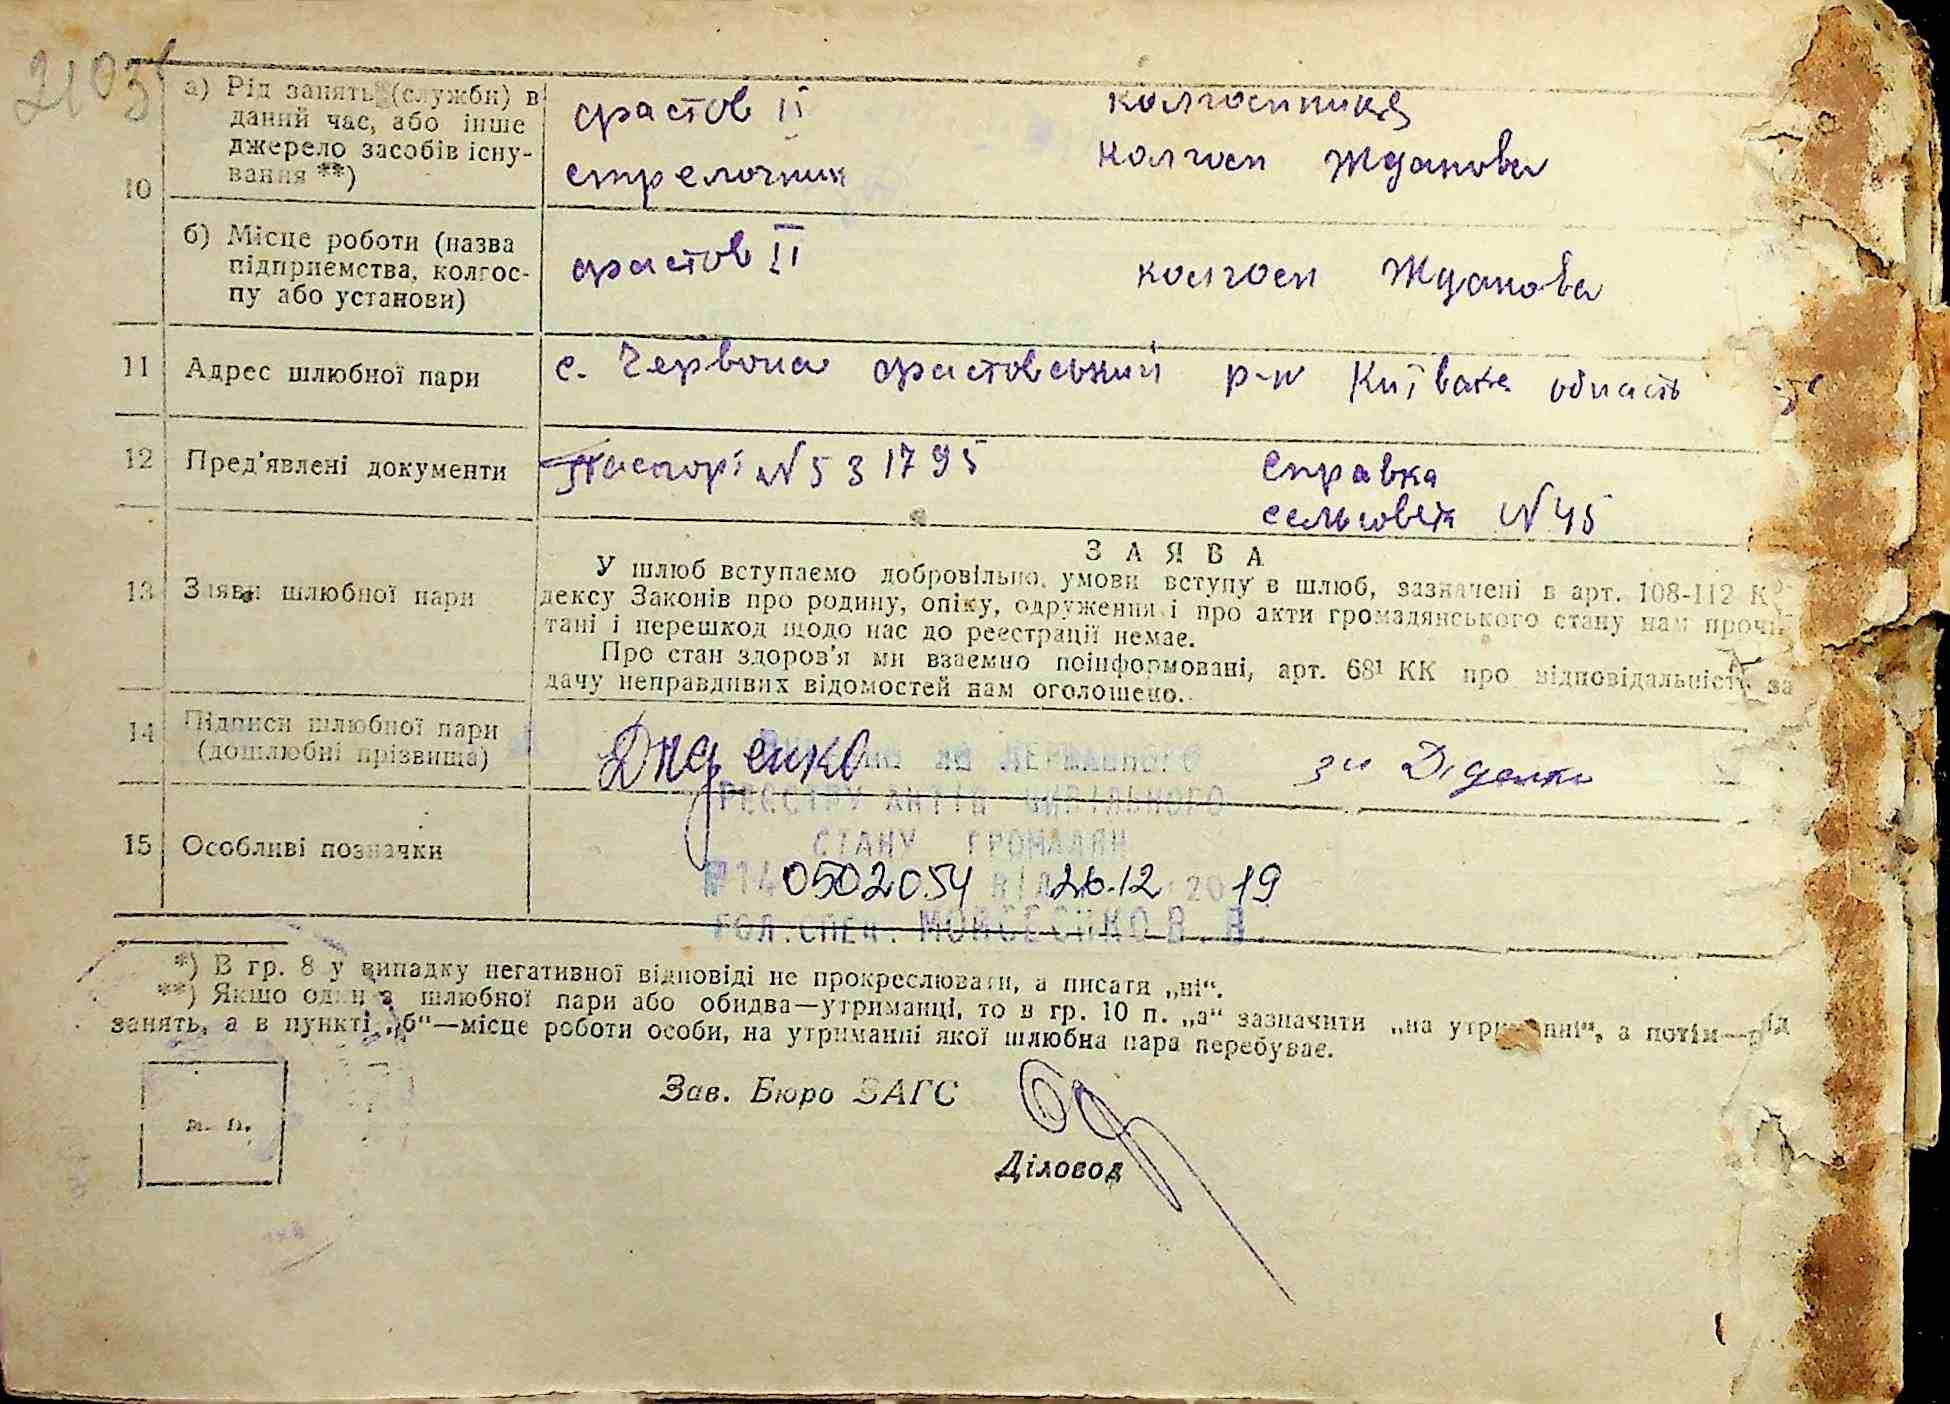 2105
а) Рід занять (служби) в
даний час, або інше
джерело засобів існу-
вання **)
10
фастов II
стрелочник
колгоспниця
колгосп Жданова
б) Місце роботи (назва
підприємства, колгос-
пу або установи)
фастов II
колгосп Жданова
11 Адрес шлюбної пари
с. Червона фастовський р-н Київска область
12 Пред'явлені документи
Паспорт N 531795
Справка
сельсовета N 45
13 Заяви шлюбної пари
ЗАЯВА
У шлюб вступаємо добровільно, умови вступу в шлюб, зазначені в арт. 108-112 Ко-
дексу Законів про родину, опіку, одруження і про акти громадянського стану нам прочи-
тані і перешкод щодо нас до реєстрації немає.
Про стан здоров'я ми взаємно поінформовані, арт. 68¹ КК про відповідальність за
дачу неправдивих відомостей нам оголошено.
14 Підписи шлюбної пари
(дошлюбні прізвища)
Диденко
Діденко
до Державного
РЕЄСТРУ АКТІВ ЦИВІЛЬНОГО
СТАНУ ГРОМАДЯН
15 Особливі позначки
0502054 від 26.12 2019
ГОЛ.СПЕЦ. МОЙСЕЄНКО В.В.
*) В гр. 8 у випадку негативної відповіді не прокреслювати, а писати „ні“.
**) Якщо один з шлюбної пари або обидва—утриманці, то в гр. 10 п. „а“ зазначити „на утриманні“, а потім—рід
занять, а в пункті „б“—місце роботи особи, на утриманні якої шлюбна пара перебуває.
м. п.
Зав. Бюро ЗАГС
Діловод